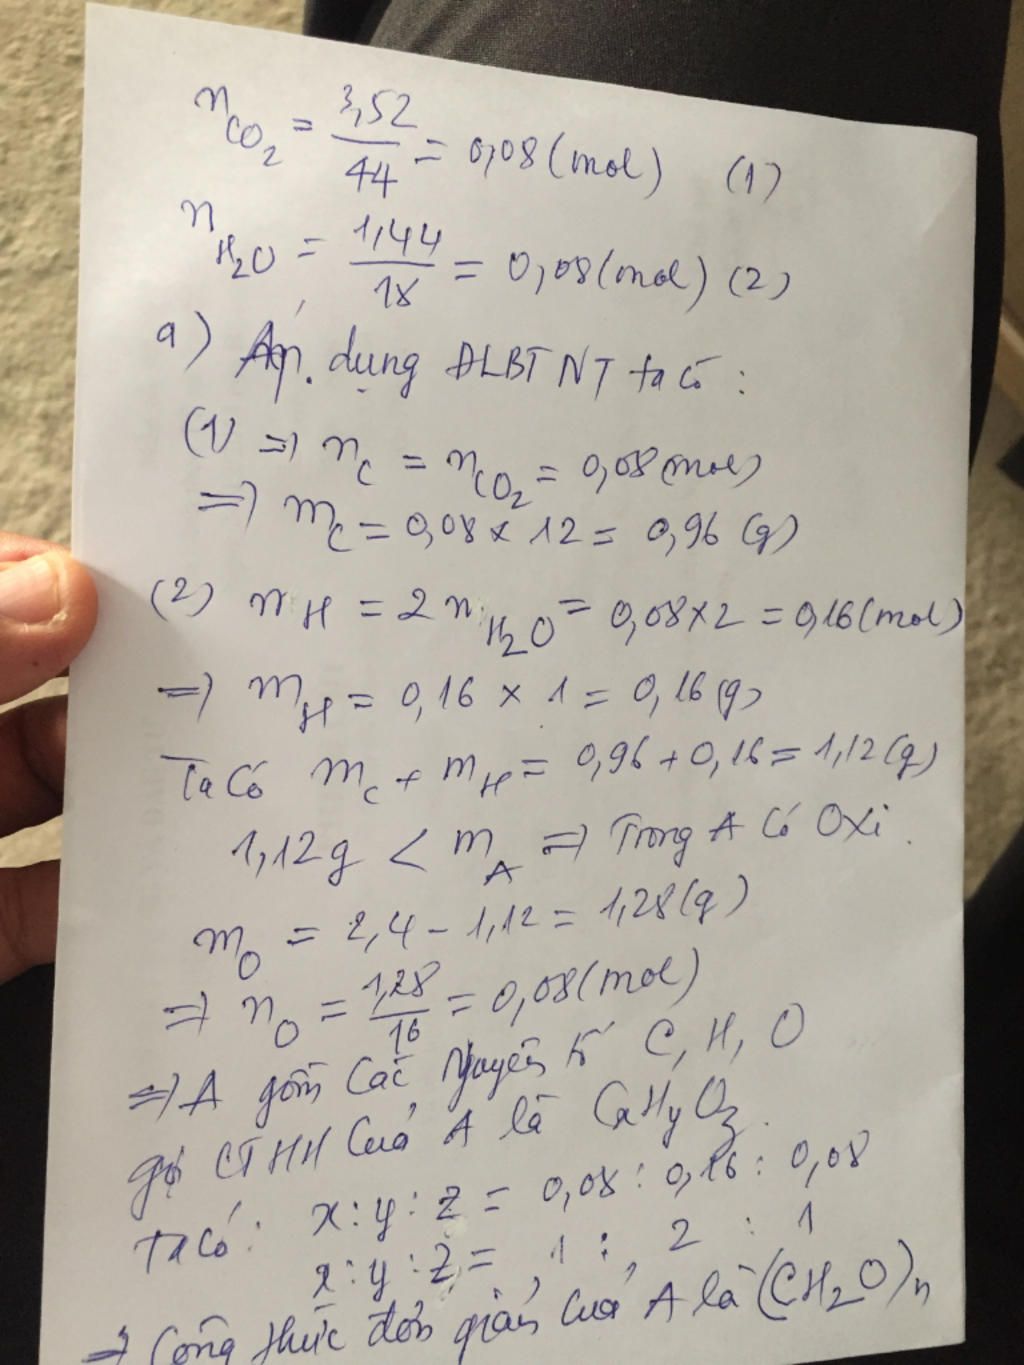 nCO2 = 3,52/44 = 0,08 (mol) (1)
nH2O = 1,44/18 = 0,08 (mol) (2)
a) Áp dụng ĐLBT NT ta có :
(1) => nC = nCO2 = 0,08 (mol)
=> mC = 0,08 x 12 = 0,96 (g)
(2) nH = 2nH2O = 0,08x2 = 0,16 (mol)
=> mH = 0,16 x 1 = 0,16 (g)
Ta có mC + mH = 0,96 + 0,16 = 1,12 (g)
1,12g < mA => Trong A có Oxi.
mO = 2,4 - 1,12 = 1,28 (g)
=> nO = 1,28/16 = 0,08 (mol)
=> A gồm các nguyên tố C, H, O
gọi CTHH của A là CxHyOz.
Ta có: x : y : z = 0,08 : 0,16 : 0,08
x : y : z = 1 : 2 : 1
=> Công thức đơn giản của A là (CH2O)n